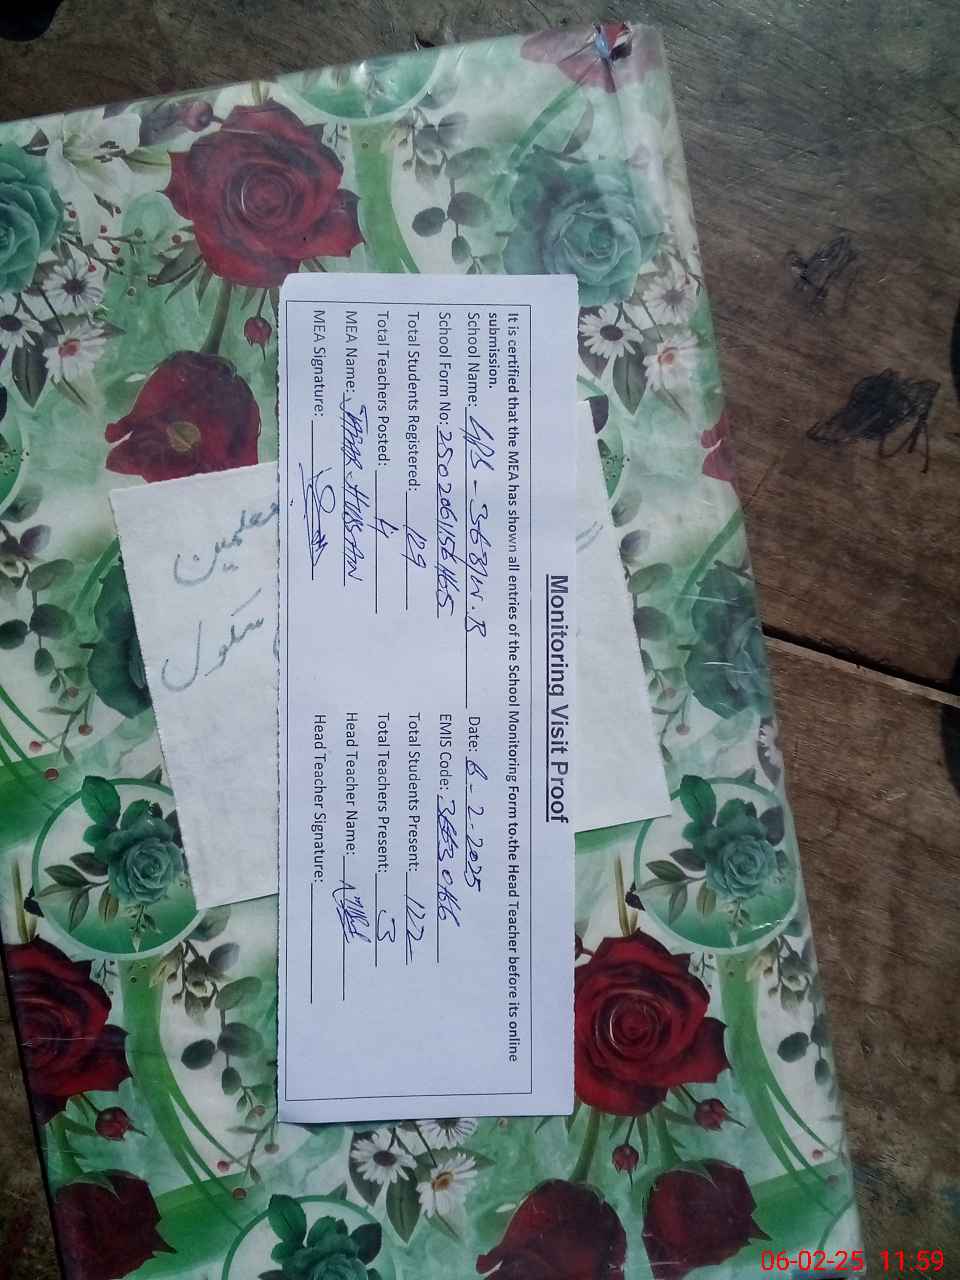 Monitoring Visit Proof
It is certified that the MEA has shown all entries of the School Monitoring Form to the Head Teacher before its online
submission.
School Name: GPS - 368/W.B Date: 6-2-2025
School Form No: EMIS Code:
Total Students Registered: 129 Total Students Present: 122
Total Teachers Posted: 4 Total Teachers Present: 3
MEA Name: JAFFAR HUSSAIN Head Teacher Name:
MEA Signature: Head Teacher Signature:
معلمین
سکول
06-02-25 11:59